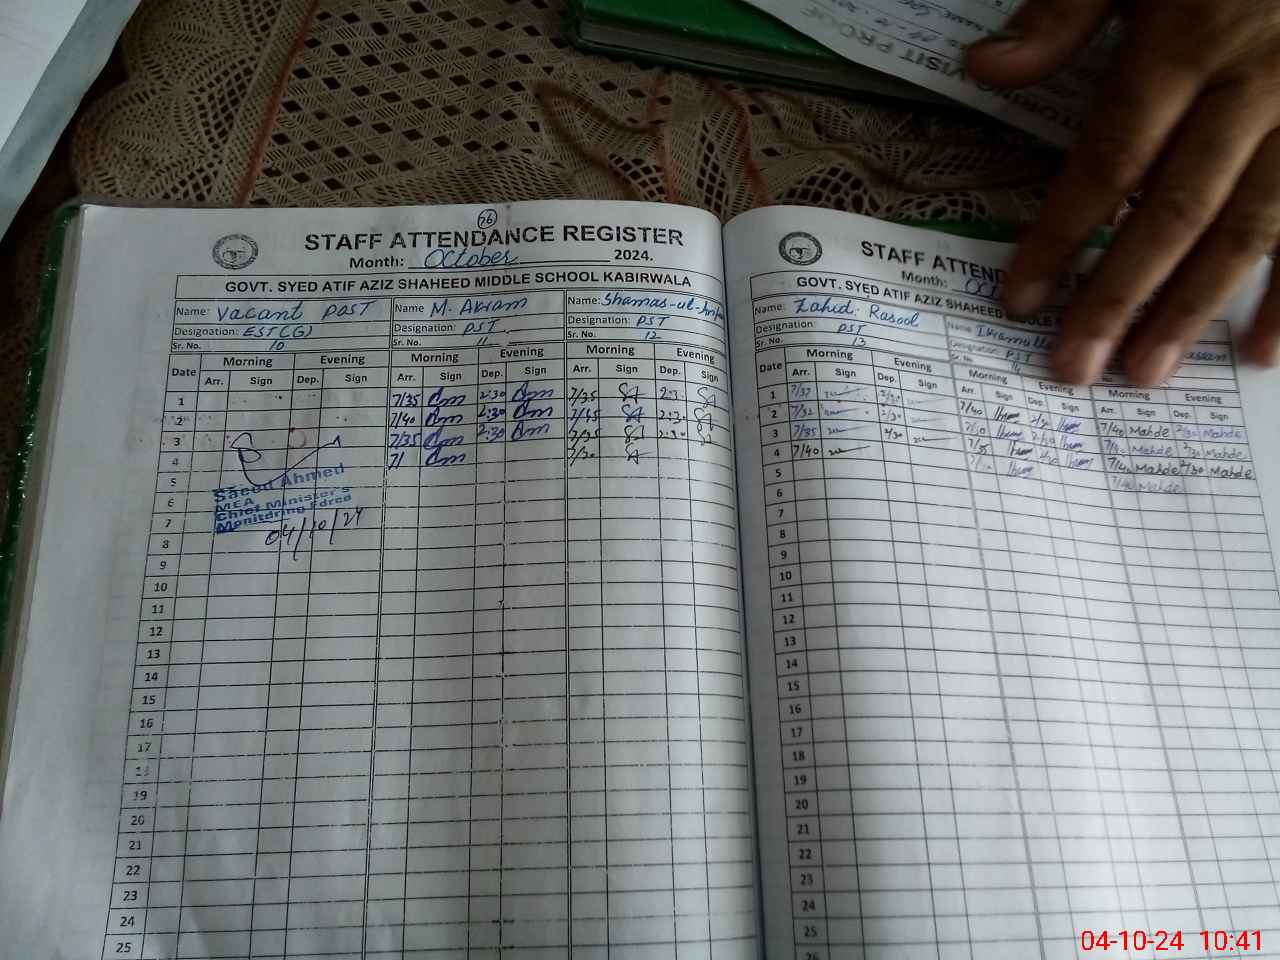 VISIT PROF
76
STAFF ATTENDANCE REGISTER
Month: October 2024.
GOVT. SYED ATIF AZIZ SHAHEED MIDDLE SCHOOL KABIRWALA
Name: Vacant Post Name M. Akram Name: Shamas-ul-
Designation: EST(G) Designation: PST Designation: PST
Sr. No. 10 Sr. No. 11 Sr. No. 12
Date Morning Evening Morning Evening Morning Evening
Arr. Sign Dep. Sign Arr. Sign Dep. Sign Arr. Sign Dep. Sign
1 7/35 Am 2:30 Am 7/35 SA 2:3 SA
2 7/40 Am 2:30 Am 7/45 SA 2:30 SA
3 7/35 Am 2:30 Am 7/35 SA 2:30 SA
4 7/ Am 7/30 SA
5
Saeed Ahmed
6
MEA
Chief Minister's
7
Monitoring Force
04/10/24
8
9
10
11
12
13
14
15
16
17
18
19
20
21
22
23
24
25
STAFF ATTEND
Month: Oc
GOVT. SYED ATIF AZIZ SHAHEED MIDDLE
Name: Zahid Rasool Name Ikramull
Designation: PST Designation: PST
Sr. No. 13 Sr. No. 14
Date Morning Evening Morning Evening Morning Evening
Arr. Sign Dep. Sign Arr. Sign Dep. Sign Arr. Sign Dep. Sign
1 7/37 2/30 7/40 2/30 7/40 Mahde 2/30 Mahde
2 7/32 2/30 7/30 2/30 Mahde Mahde
3 7/35 2/30 7/35 2/30 7/40 Mahde 2/30 Mahde
4 7/40 7/40 Mahde
5
6
7
8
9
10
11
12
13
14
15
16
17
18
19
20
21
22
23
24
25
26
04-10-24 10:41